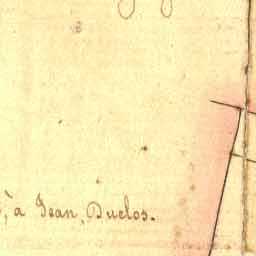 , à Jean, Duclos.